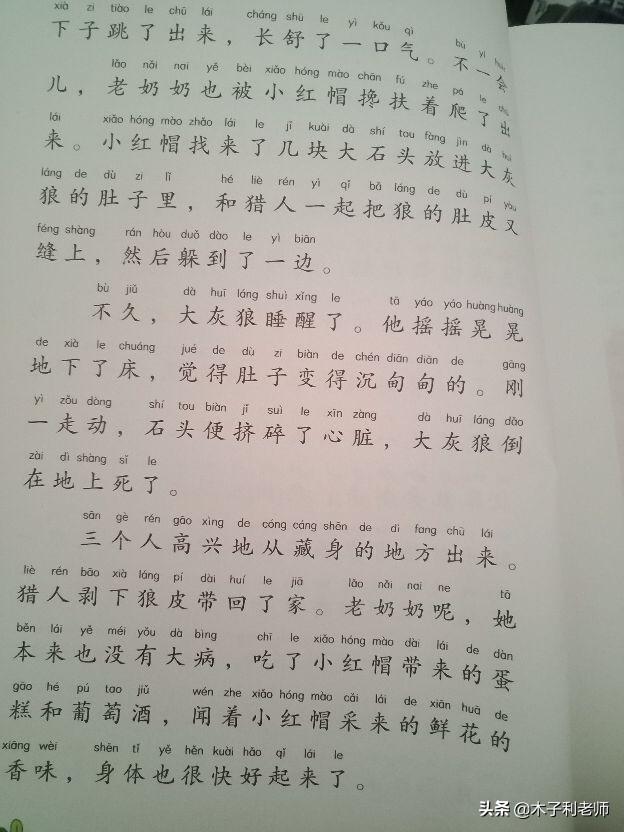 xià zi tiào le chū lái cháng shū le yì kǒu qì bù yí huìr
下子跳了出来，长舒了一口气。不一会
lǎo nǎi nai yě bèi xiǎo hóng mào chān fú zhe pá le chū
儿，老奶奶也被小红帽搀扶着爬了出
lái xiǎo hóng mào zhǎo lái le jǐ kuài dà shí tou fàng jìn dà huī
来。小红帽找来了几块大石头放进大灰
láng de dù zi lǐ hé liè rén yì qǐ bǎ láng de dù pí yòu
狼的肚子里，和猎人一起把狼的肚皮又
féng shàng rán hòu duǒ dào le yì biān
缝上，然后躲到了一边。
bù jiǔ dà huī láng shuì xǐng le tā yáo yáo huàng huàng
不久，大灰狼睡醒了。他摇摇晃晃
de xià le chuáng jué de dù zi biàn de chén diān diān de gāng
地下了床，觉得肚子变得沉甸甸的。刚
yì zǒu dòng shí tou biàn jǐ suì le xīn zàng dà huī láng dǎo
一走动，石头便挤碎了心脏，大灰狼倒
zài dì shàng sǐ le
在地上死了。
sān gè rén gāo xìng de cóng cáng shēn de dì fang chū lái
三个人高兴地从藏身的地方出来。
liè rén bāo xià láng pí dài huí le jiā lǎo nǎi nai ne tā
猎人剥下狼皮带回了家。老奶奶呢，她
běn lái yě méi yǒu dà bìng chī le xiǎo hóng mào dài lái de dàn
本来也没有大病，吃了小红帽带来的蛋
gāo hé pú tao jiǔ wén zhe xiǎo hóng mào cǎi lái de xiān huā de
糕和葡萄酒，闻着小红帽采来的鲜花的
xiāng wèi shēn tǐ yě hěn kuài hǎo qǐ lái le
香味，身体也很快好起来了。
头条 @木子利老师